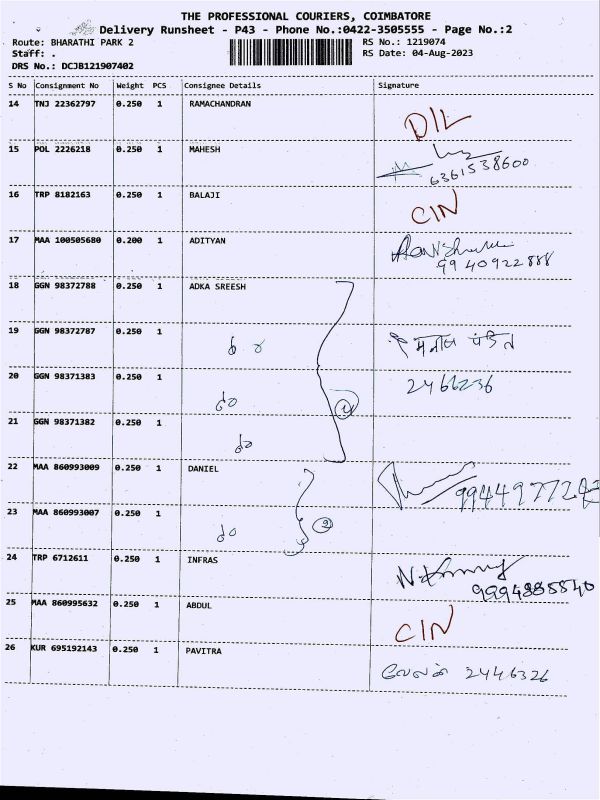 THE PROFESSIONAL COURIERS, COIMBATORE
Delivery Runsheet - P43 - Phone No.:0422-3505555 - Page No.:2
Route: BHARATHI PARK 2 RS No.: 1219074
Staff: . RS Date: 04-Aug-2023
DRS No.: DCJB121907402
S No Consignment No Weight PCS Consignee Details Signature
14 TNJ 22362797 0.250 1 RAMACHANDRAN
D/L
15 POL 2226218 0.250 1 MAHESH
6361538600
16 TRP 8182163 0.250 1 BALAJI
C/N
17 MAA 100505680 0.200 1 ADITYAN
9940922888
18 GGN 98372788 0.250 1 ADKA SREESH
19 GGN 98372787 0.250 1
20 GGN 98371383 0.250 1
2466236
do
21 GGN 98371382 0.250 1
do
22 MAA 860993009 0.250 1 DANIEL
23 MAA 860993007 0.250 1
do 2
24 TRP 6712611 0.250 1 INFRAS
9994885840
25 MAA 860995632 0.250 1 ABDUL
C/N
26 KUR 695192143 0.250 1 PAVITRA
2446326